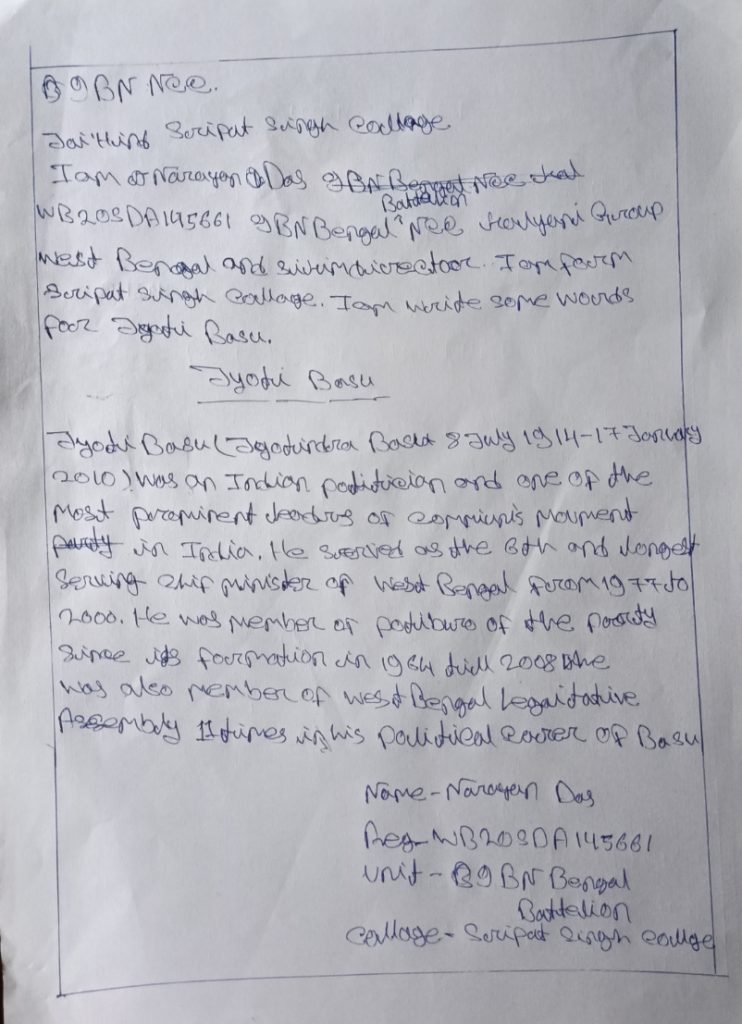 9 BN NCC.
Jai Hind Sripat Singh Collage
I am Narayan Das 9 BN Bengal NCC
Battalion
WB20SDA145661 9 BN Bengal NCC Kalyani Group
West Bengal and sikim directoor. I am form
Sripat Singh Collage. I am write some words
foor Jyoti Basu.
Jyoti Basu
Jyoti Basu (Jyotindra Basu 8 July 1914-17 January
2010) was an Indian politician and one of the
most prominent leaders of communis moument
party in India. He as the 6th and longest
serving chif minister of West Bengal from 1977 to
2000. He was member of politburo of the
since its foormation in 1964 till 2008 the
was also member of West Bengal
Assembly 11 times in his political carrer of Basu
Name - Narayan Das
Reg - WB20SDA145661
Unit - 9 BN Bengal
Battalion
Collage - Sripat Singh Collge